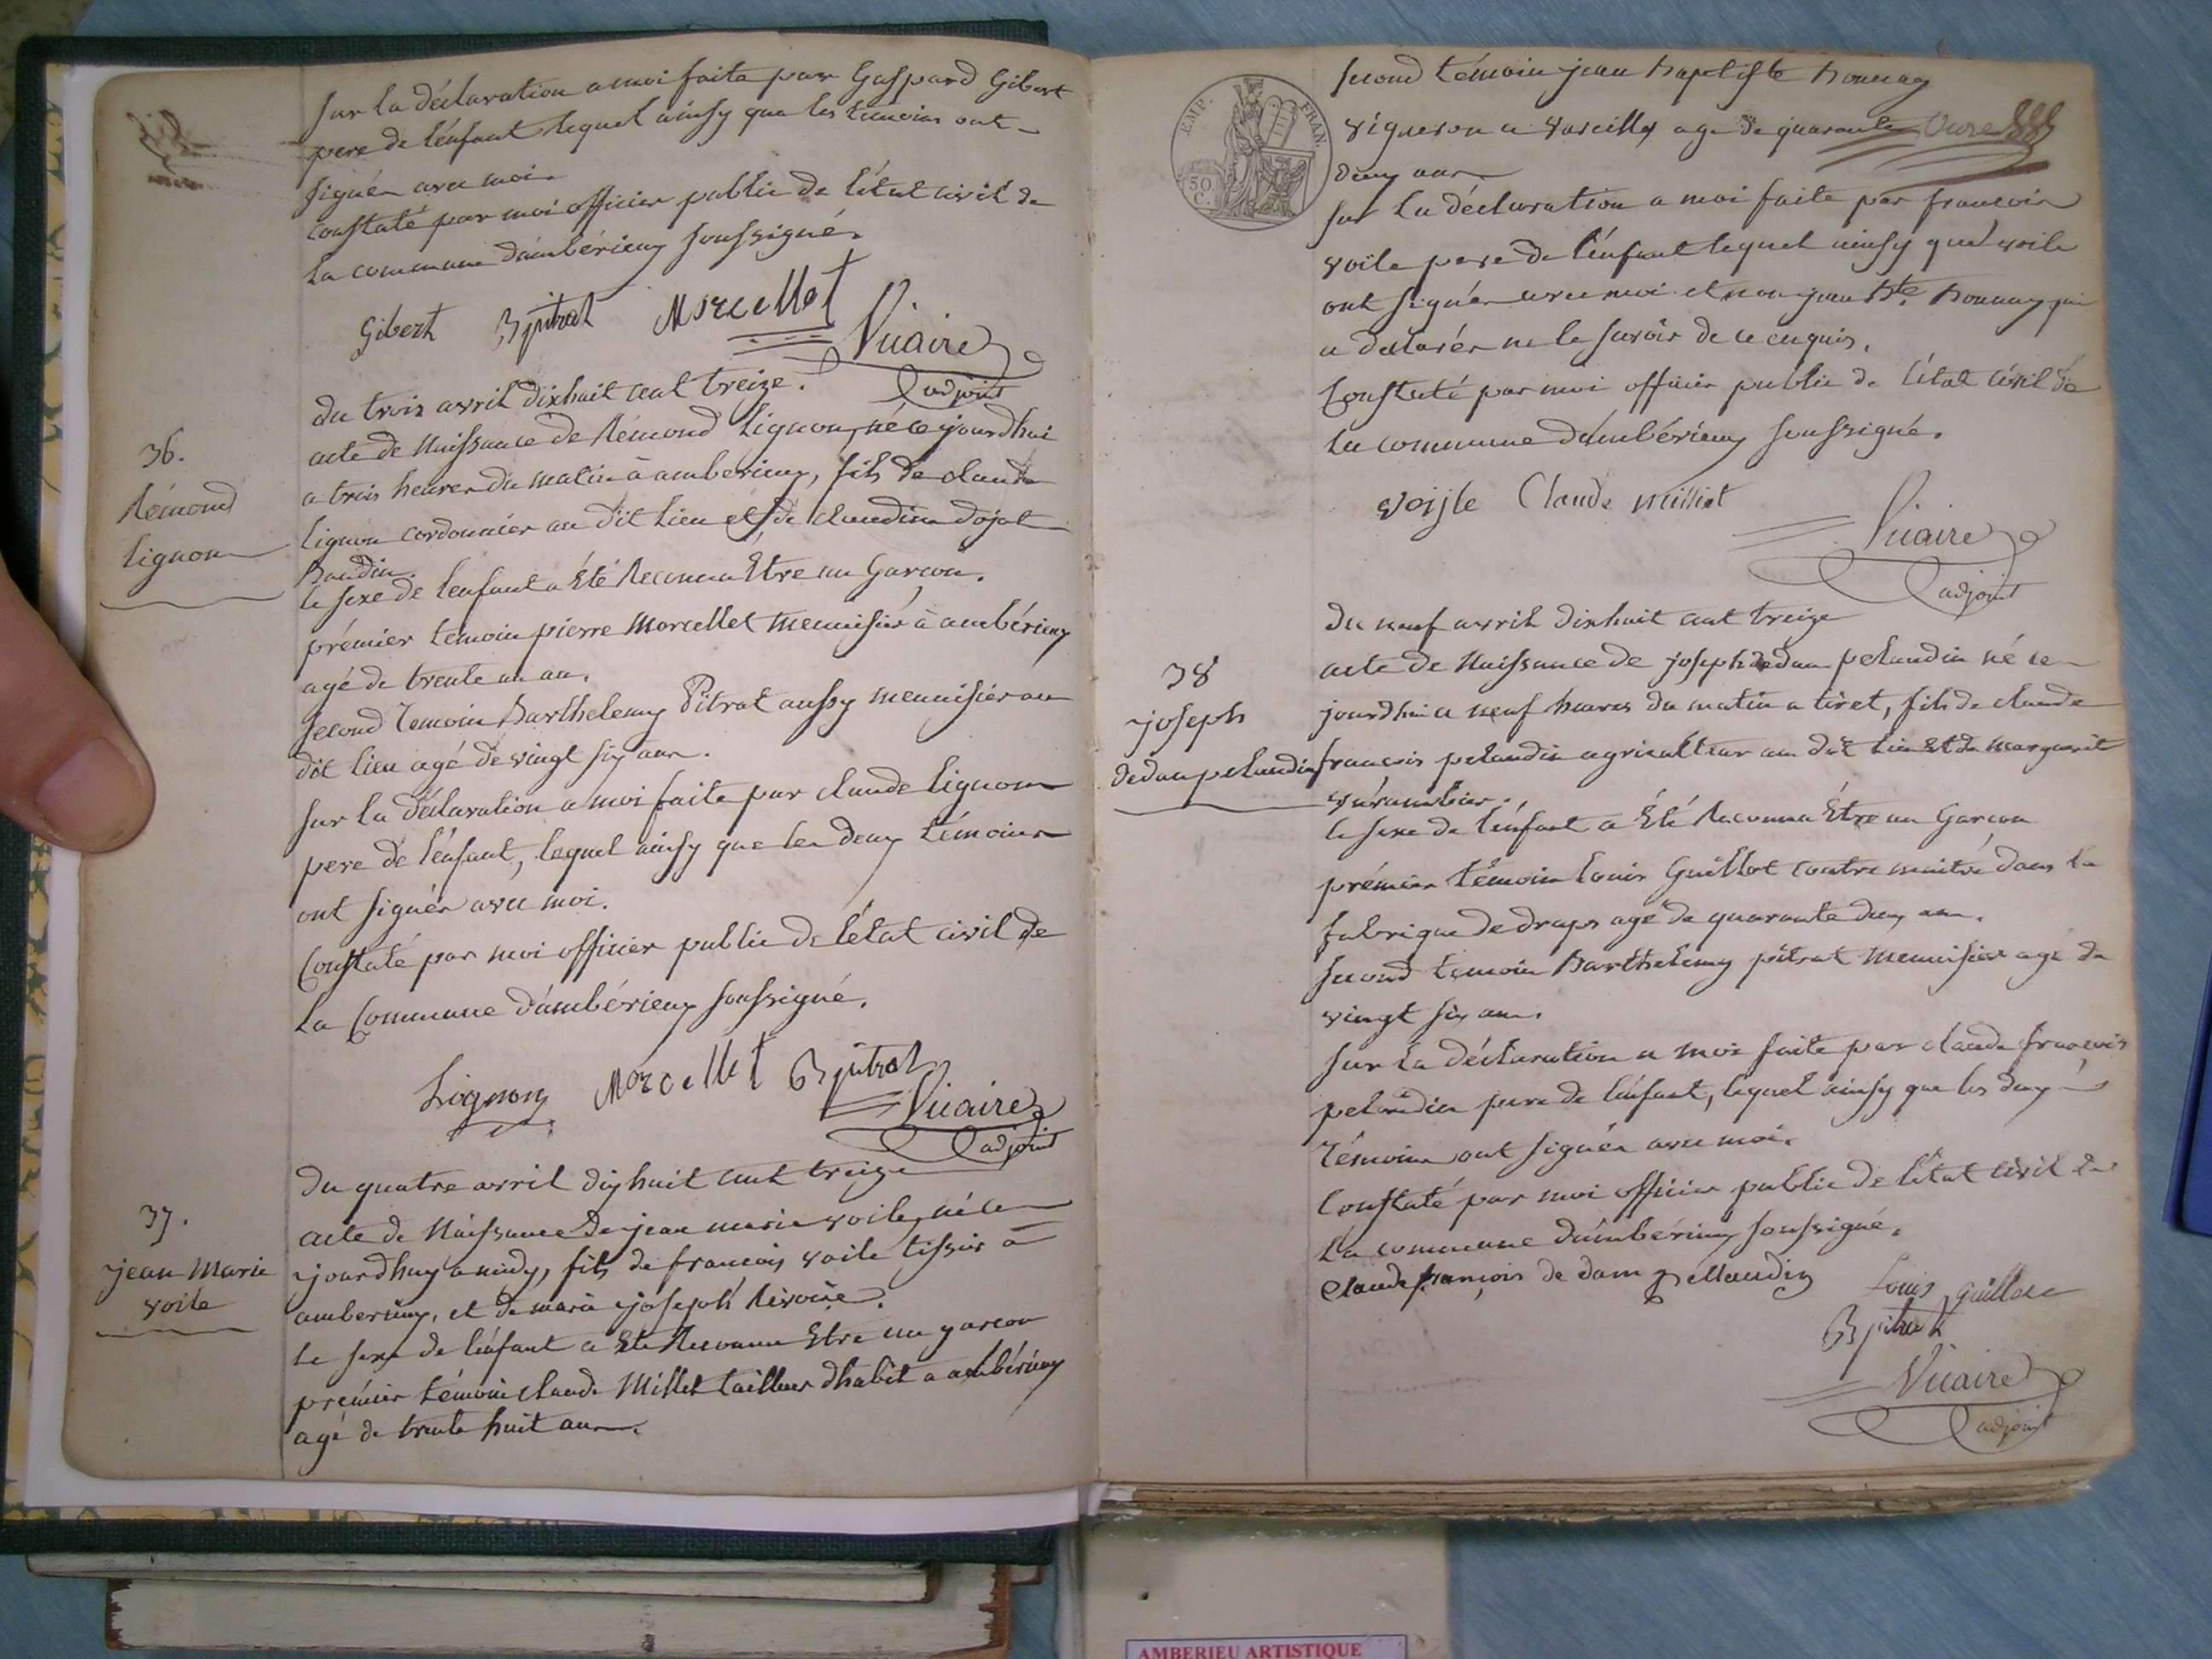 sur la déclaration a moi faite par Gaspard Gibert
pere de lénfant lequel ainsy que les témoins ont
signés avec moi.
Constaté par moi officier public de létat civil de
la commune d'ambérieux soussigné.
Gibert B pitrat Morcellet Vicaire
adjoint
du trois avril dixhuit cent treize.
36.
Rémond
lignon
acte de Naissance de Rémond lignon, né ce jourdhui
a trois heures du matin à amberieux, fils de claude
lignon cordonnier au dit lieu et de claudine dojat
Baudin.
le sexe de lenfant a Été Reconnu Être un Garcon.
prémier témoin pierre Morcellet menuisier à ambérieux
agé de trente un an.
second témoin Barthelemy Pitrat aussy menuisier au
dit lieu agé de vingt six ans.
sur la déclaration a moi faite par claude lignon
pere de lénfant, lequel ainsy que les deux témoins
ont signés avec moi.
Constaté par moi officier public de létat civil de
la Commune d'ambérieux soussigné.
Lignon Morcellet B pitrat Vicaire
adjoint
du quatre avril dixhuit cent treize
37.
jean Marie
voile
acte de Naissance de jean marie voile, né ce
jourdhuy a midy, fils de francois voile tissier a
amberieux, et de marie joseph Révoire.
le sexe de lénfant a Eté Reconnu Etre un garcon
prémier témoin claude Millet tailleur dhabit a ambérieux
agé de trente huit ans.
EMP. FRAN.
50
C.
second témoin jean Baptiste Bonnay
vigneron a Vareilles age de quarante
deux ans
sur la déclaration a moi faite par francois
voile pere de l'énfant lequel ainsy que
ont signés avec moi et non jean Bte. Bonnay qui
a déclarés ne le savoir de ce enquis.
Constaté par moi officier public de l'état civil de
la commune d'ambérieux soussigné.
voisle Claude milliet
Vicaire
adjoint
du neuf avril dixhuit cent treize
38
joseph
dedanpelandin
acte de Naissance de joseph dedan pelandin né ce
jourdhui a neuf heures du matin a tiret, fils de claude
francois pelandin agriculteur au dit lieu et de marguerite
le sexe de l'énfant a Été Reconnu Être un Garcon
prémier témoin Louis Guillot contre maitre dans la
fabrique de draps agé de quarante deux ans.
second témoin Barthelemy pitrat menuisier agé de
vingt six ans.
sur la déclaration a moi faite par claude francois
pelandin pere de lénfant, lequel ainsy que les deux
témoins ont signés avec moi.
Constaté par moi officier public de létat civil de
la commune d'ambérieux soussigné.
Claude françois de dam pellandin Louis guillot
B pitrat
Vicaire
adjoint
AMBERIEU ARTISTIQUE